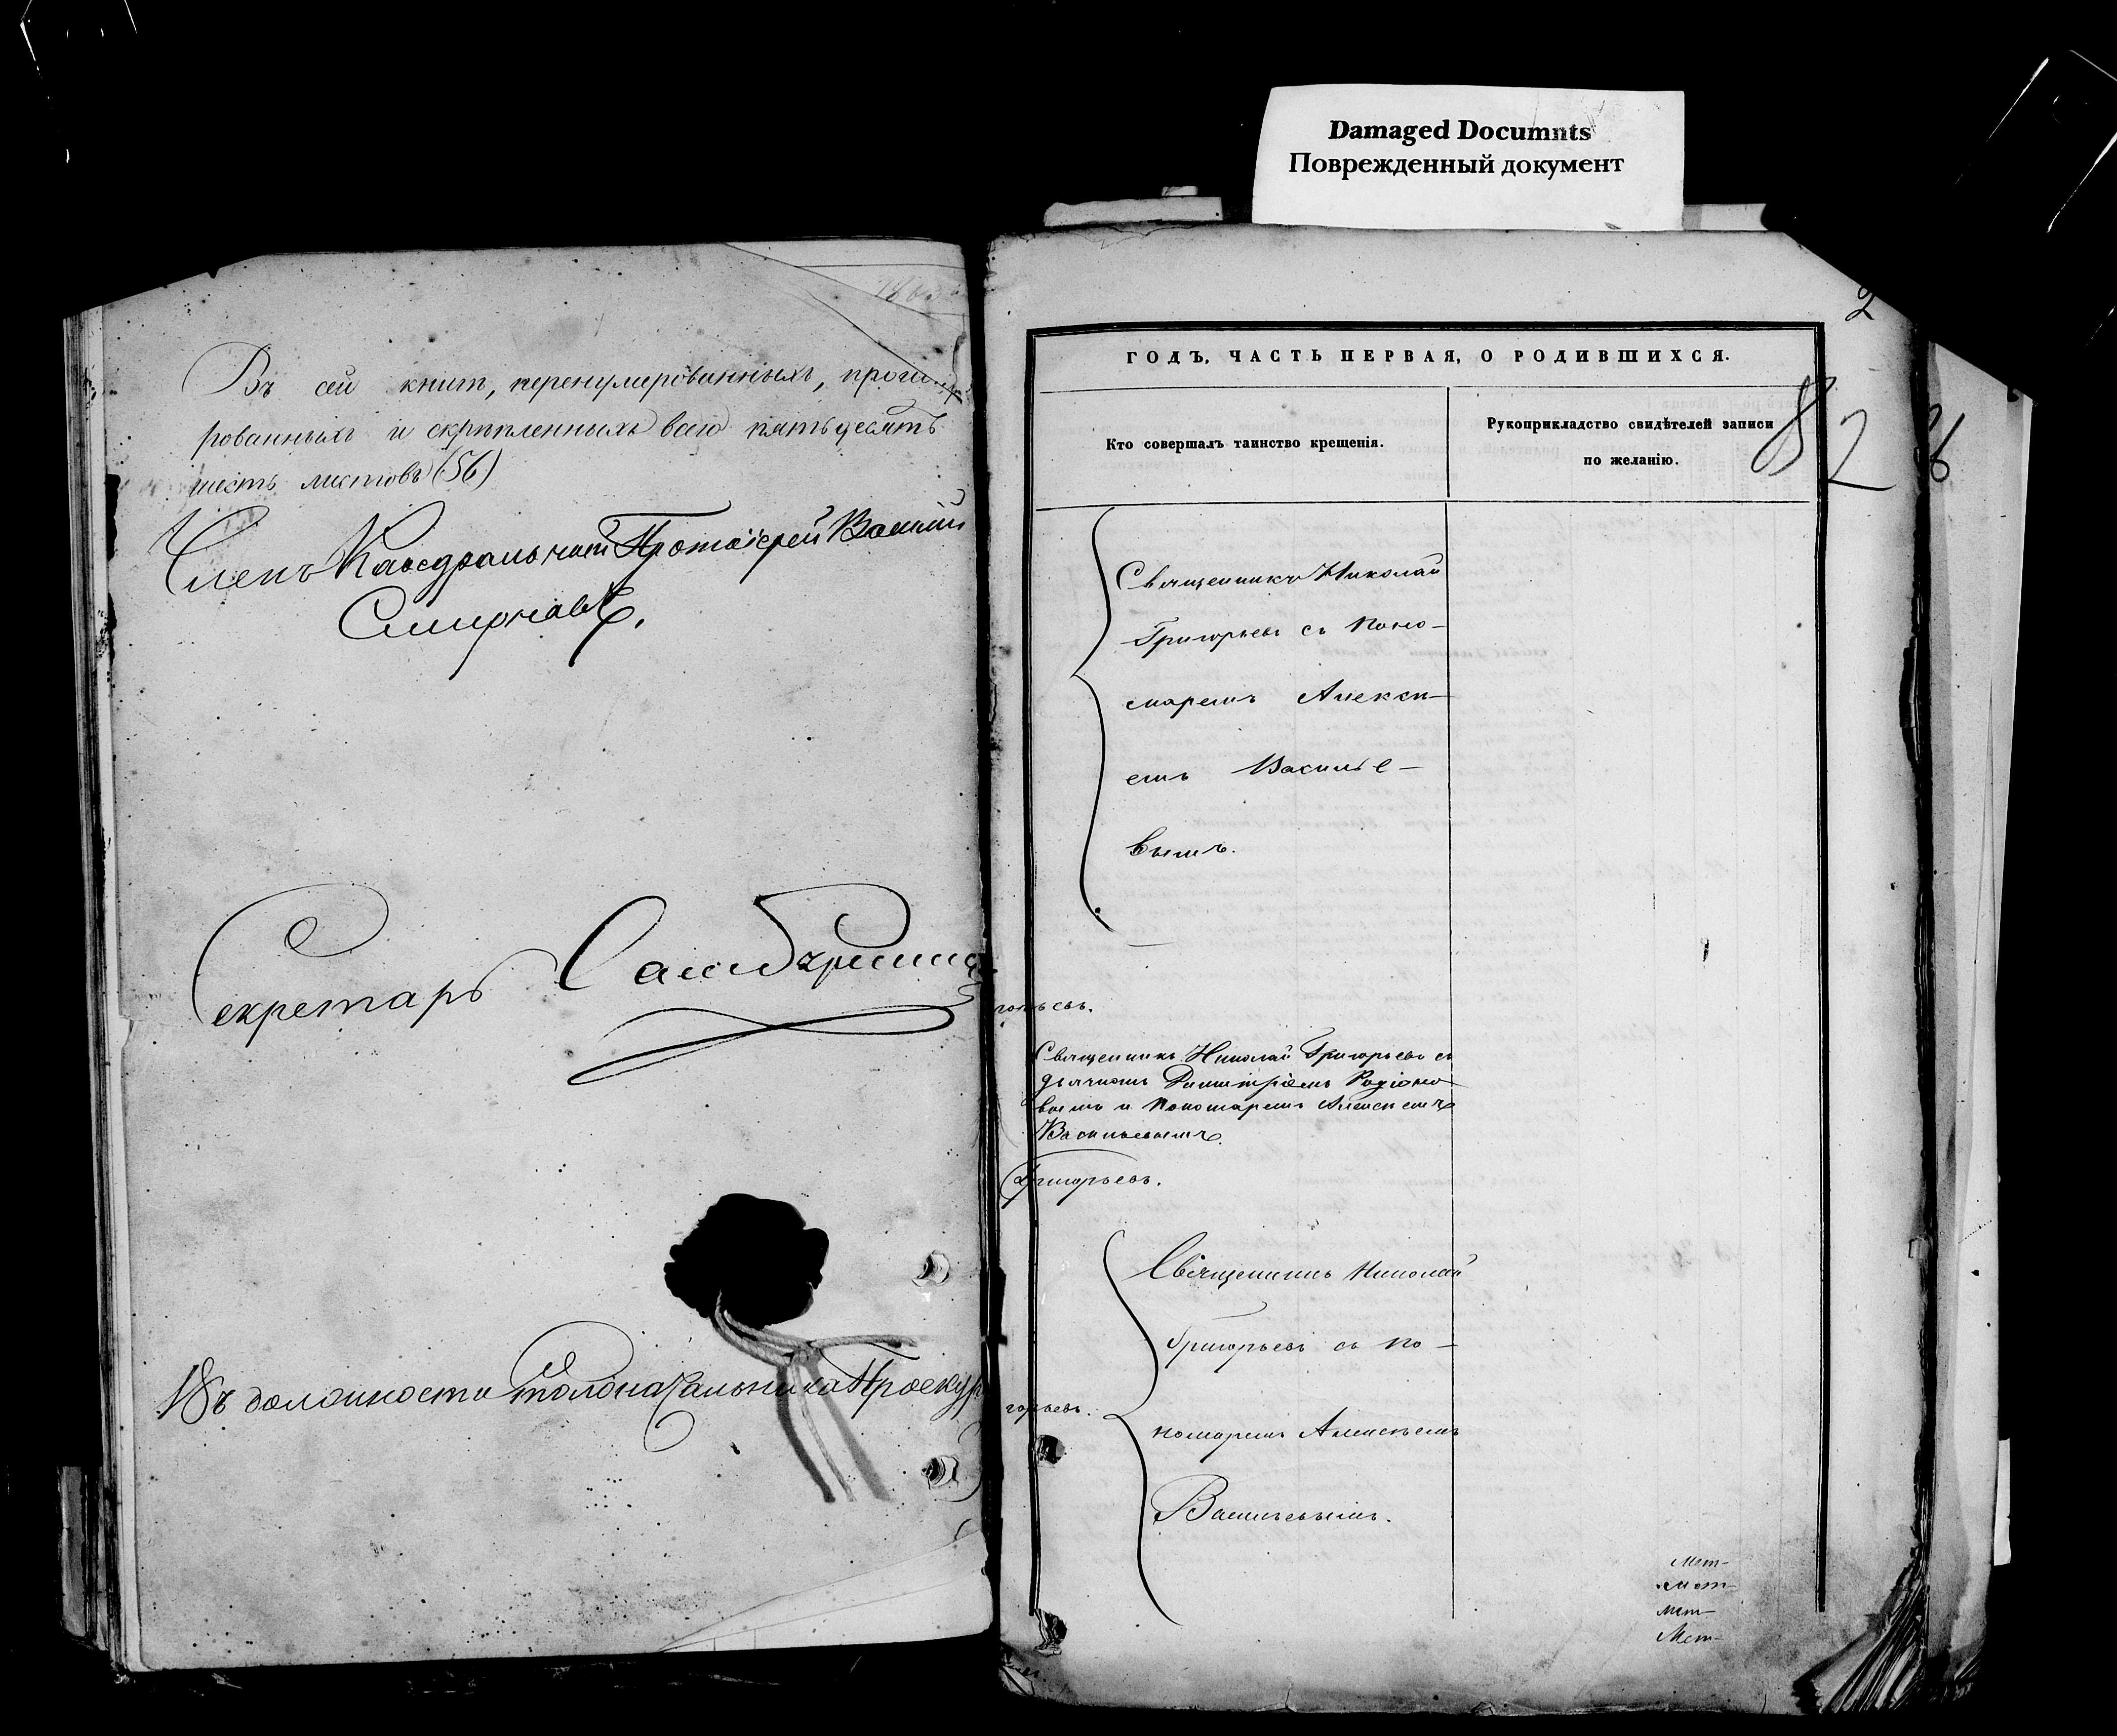 Damaged Documnts
Поврежденный документ
Въ сей книгѣ, перенумерованныхъ, прошну
рованныхъ и скрѣпленныхъ всего пятьдесятъ
шесть листовъ (56)
Членъ Каѳедральный Протоіерей Василій
Смирновъ.
Секретарь
Въ должности Столоначальника Проскур
2
ГОДЪ, ЧАСТЬ ПЕРВАЯ, О РОДИВШИХСЯ.
Кто совершалъ таинство крещенія.
Рукоприкладство свидѣтелей записи
по желанію.
82
Священникъ Николай
Григорьевъ съ поно-
маремъ Алексѣ-
емъ Василье-
вымъ.
горьевъ.
Священникъ Николай Григорьевъ съ
дьячкомъ Димитріемъ Родіоно
вымъ и пономаремъ Алексѣемъ
Васильевымъ.
Григорьевъ.
Священникъ Николай
Григорьевъ съ по-
номаремъ Алексѣемъ
горьевъ.
Васильевымъ.
Мет-
Мет-
Мет-
Мет-